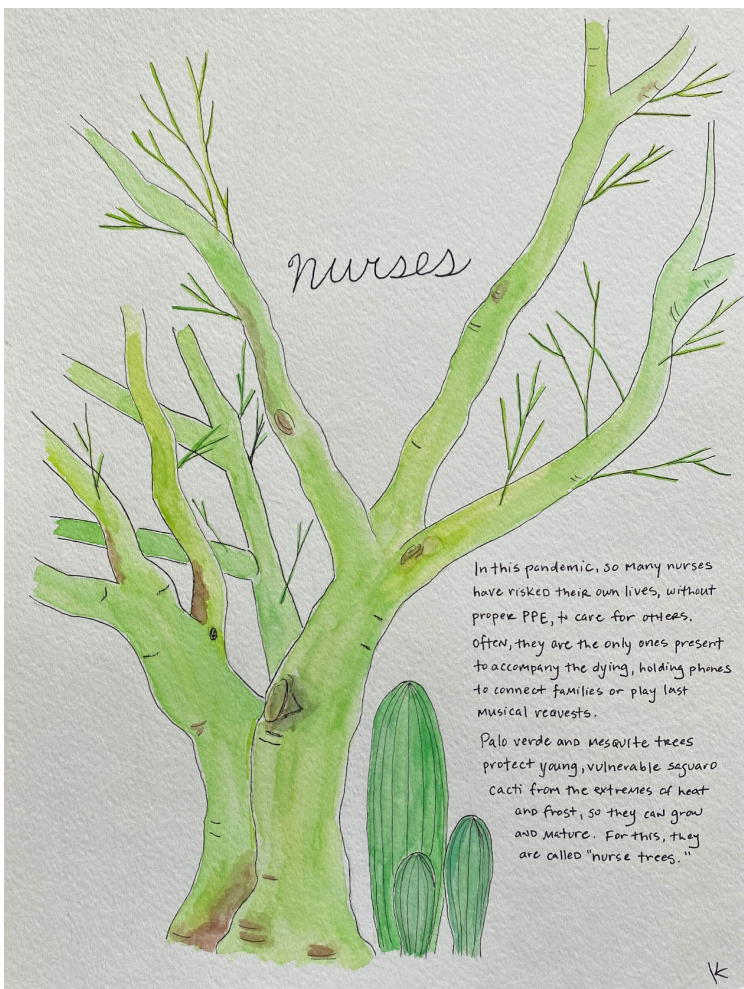 nurses
In this pandemic, so many nurses
have risked their own lives, without
proper PPE, to care for others.
Often, they are the only ones present
to accompany the dying, holding phones
to connect families or play last
musical requests.
Palo verde and mesquite trees
protect young, vulnerable saguaro
cacti from the extremes of heat
and frost, so they can grow
and mature. For this, they
are called "nurse trees."
VK